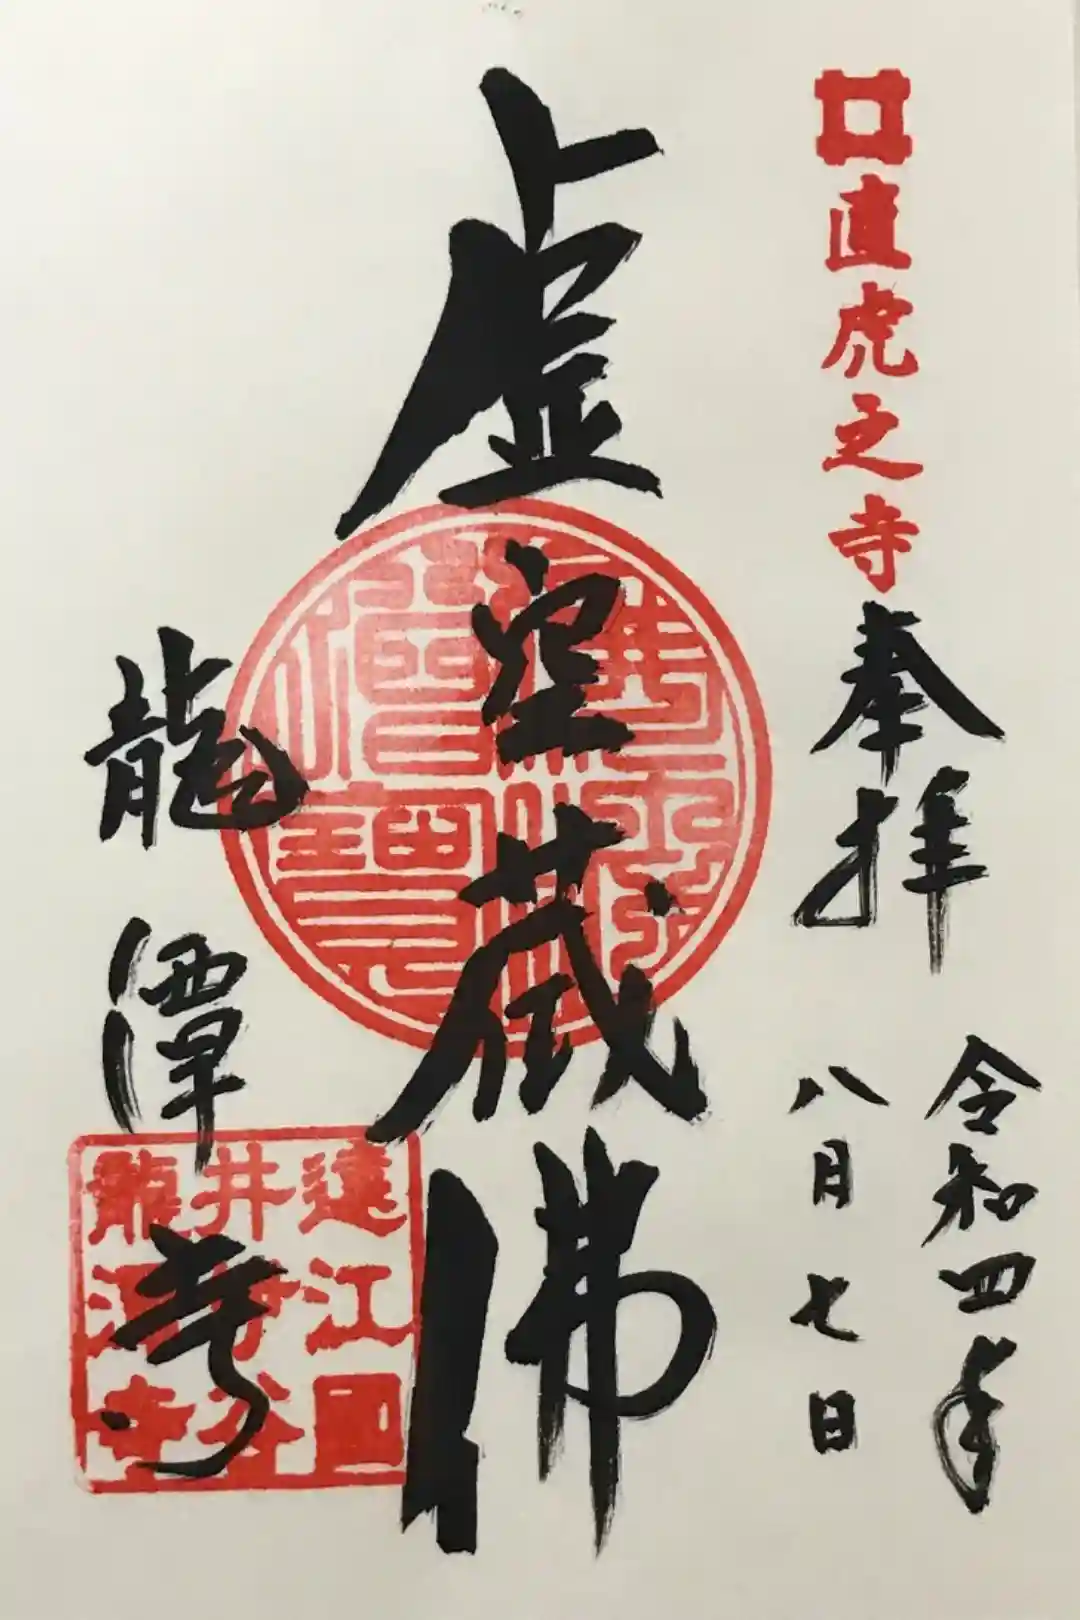 直虎之寺
奉拝
令和四年
八月七日
虚空蔵佛
龍潭寺
遠江國
井伊谷
龍潭寺